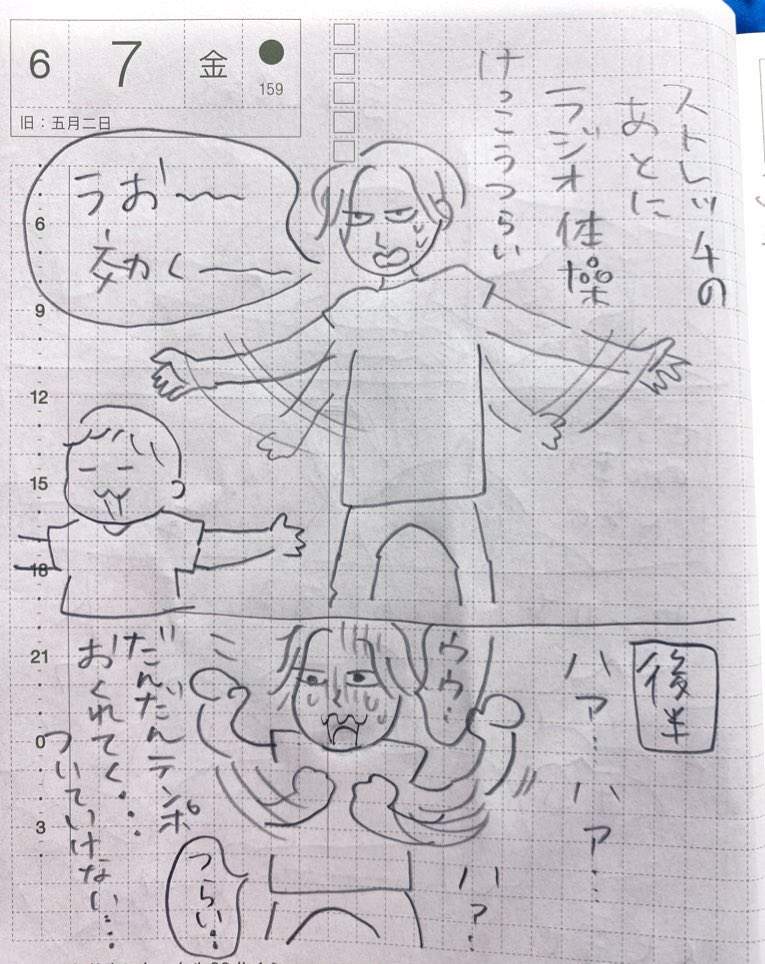 6 7 金
159
旧：五月二日
ストレッチの
あとに
ラジオ体操
けっこうつらい
うお〜〜
効く――
6
9
12
15
18
21
0
3
後半
ハァ…
ハァ…
ハァ…
ウウ…
だんだんテンポ
おくれてく…
ついていけない…
つらい…